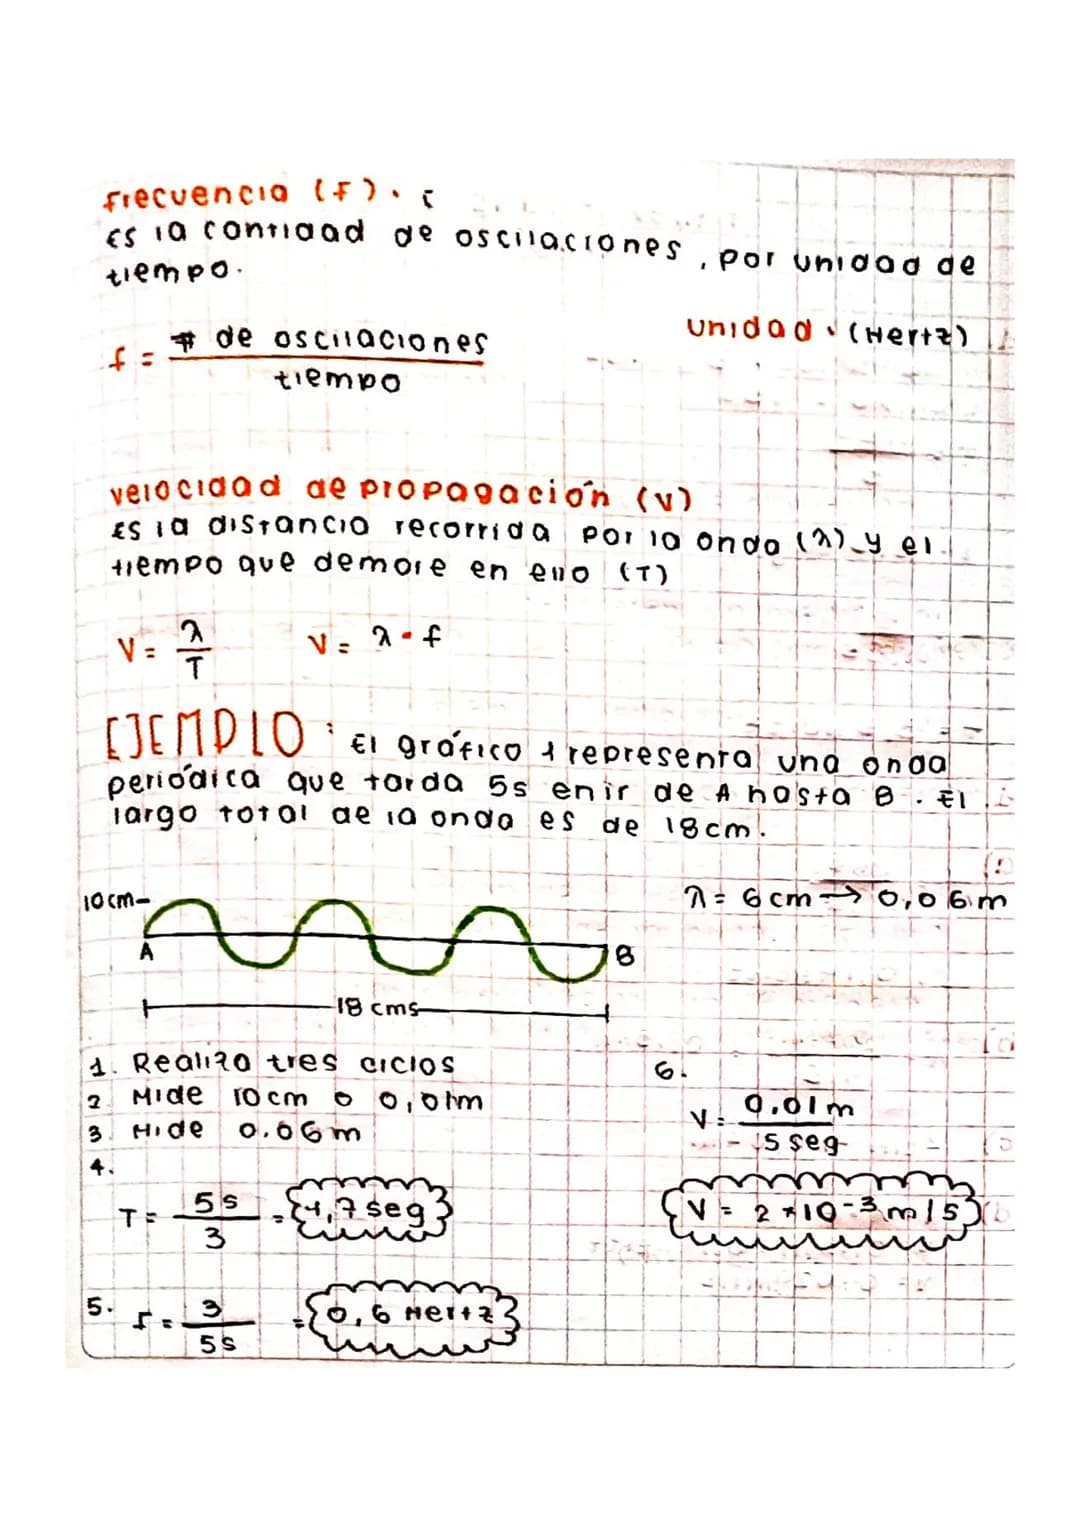 Frecuencia (f).
Es la cantidad de oscilaciones, por unidad de
tiempo.
f = # de oscilaciones / tiempo
unidad. (Hertz)
velocidad de propagación (V)
Es la distancia recorrida por la onda (λ) y el
tiempo que demore en ello (T)
V = λ / T    V = λ • f
EJEMPLO: El gráfico 1 representa una onda
periódica que tarda 5s en ir de A hasta B. El
largo total de la onda es de 18cm.
10cm-
λ = 6cm → 0,06m
A B
18 cms
1. Realiza tres ciclos
2 Mide 10cm o 0,01m
3 Mide 0.06m
4.
T = 5s / 3 = 1,7 seg
5. f = 3 / 5s = 0,6 Hertz
6.
V = 0.01m / 5 seg
V = 2 * 10-3 m/s